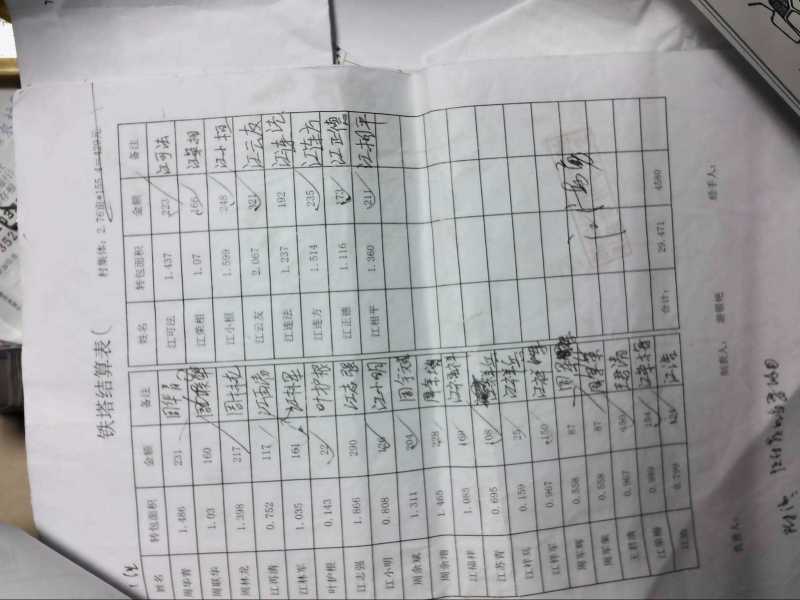 铁塔结算表(
村集体：2.76亩*155.4=429元
姓名 转包面积 金额 备注 姓名 转包面积 金额 备注
周华青 1.486 231 周华青 江可法 1.437 223 江可法
周联华 1.03 160 江荣相 1.07 166 江荣相
周林龙 1.398 217 周林龙 江小根 1.599 248 江小根
江苏清 0.752 117 江云友 2.067 321 江云友
江林军 1.035 161 江林军 江连法 1.237 192 江连法
叶护根 0.143 22 叶护根 江连方 1.514 235 江连方
江志强 1.866 290 江志强 江正德 1.116 173 江正德
江小明 0.808 126 江小明 江相平 1.360 211 江相平
周余斌 1.311 204
周余增 1.465 228
江福祥 1.085 169
江苏青 0.695 108
江祥兵 0.159 25 江祥兵
江祥军 0.967 150 江祥军
周军辉 0.558 87
周军荣 0.558 87 周军荣
王碧清 0.967 150
江荣梅 0.989 154 江荣梅
江浩 0.799 124 江浩 合计： 29.471 4580
负责人： 经手人：